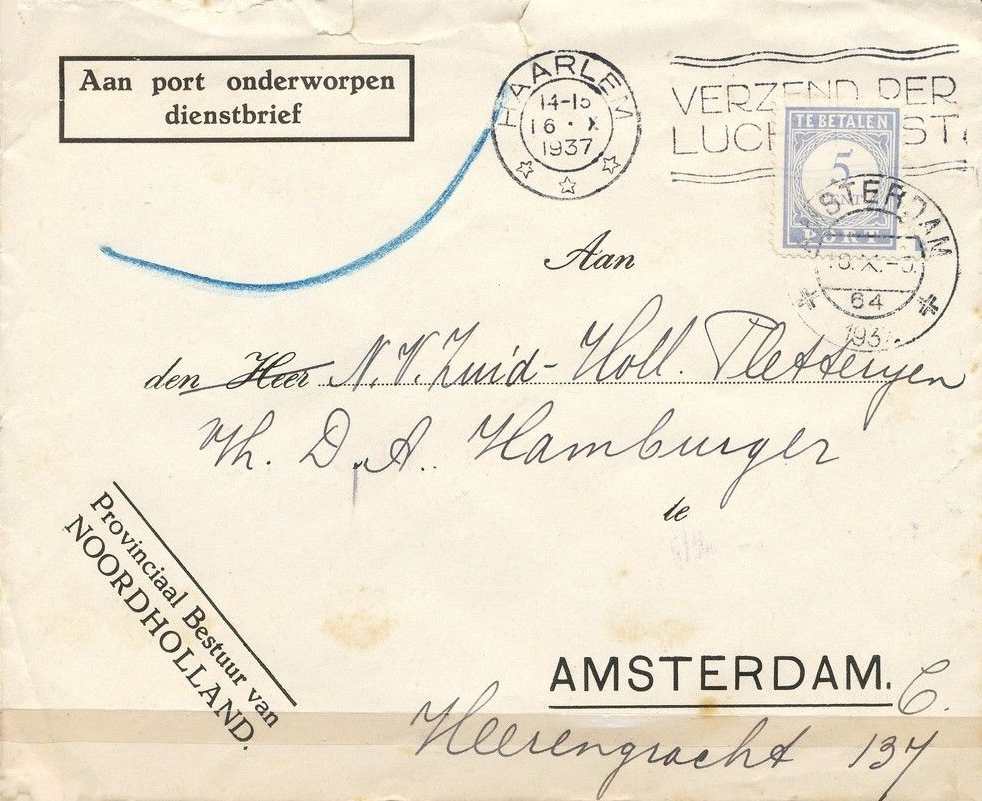 Aan port onderworpen
dienstbrief
HAARLEM
14-15
16 · X
1937
VERZEND PER
LUC ST
TE BETALEN
5
PORT
AMSTERDAM
64
1937
Aan
den Heer N.V. Zuid-Holl. Pletteryen
Th. D. A. Hamburger
te
Provinciaal Bestuur van
NOORDHOLLAND.
AMSTERDAM. C.
Heerengracht 137